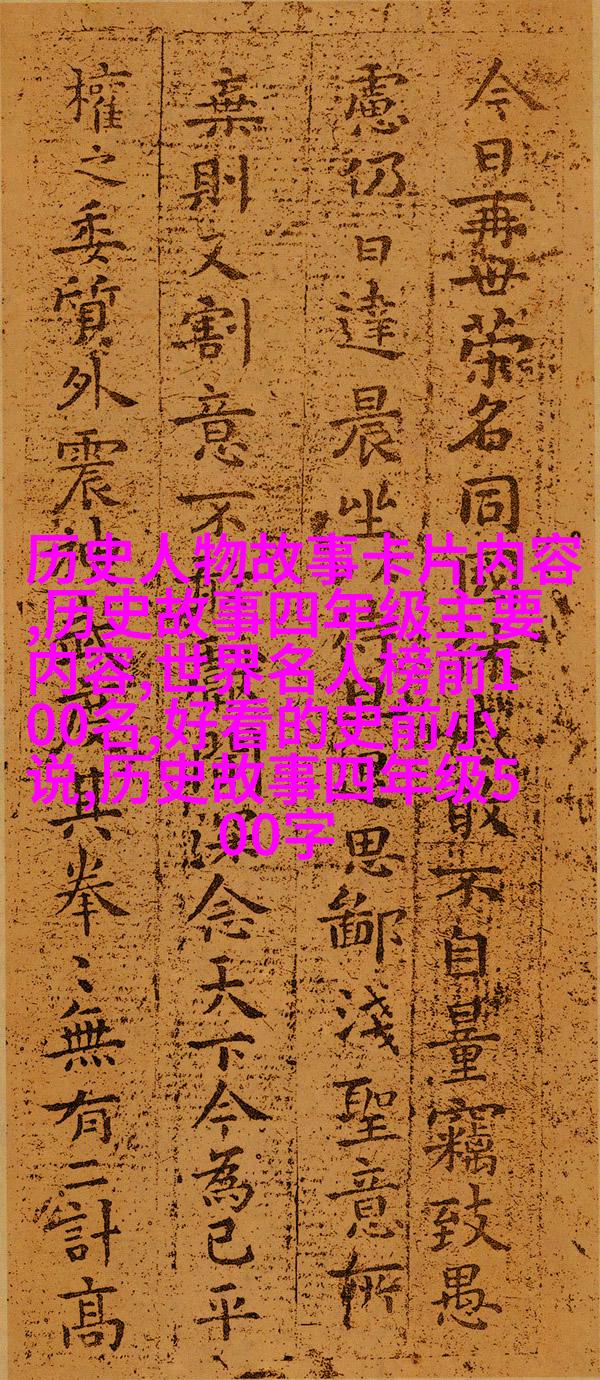 今日再世荣名同國敢不自量竊致愚
慮仍日達晨坐思鄙淺聖意所
棄則又割意不念天下今為已平
權之委質外震神其拳〻無有二計高
历史人物故事卡片内容
,历史故事四年级主要
内容,世界名人榜前1
00名,好看的史前小
说,历史故事四年级5
00字